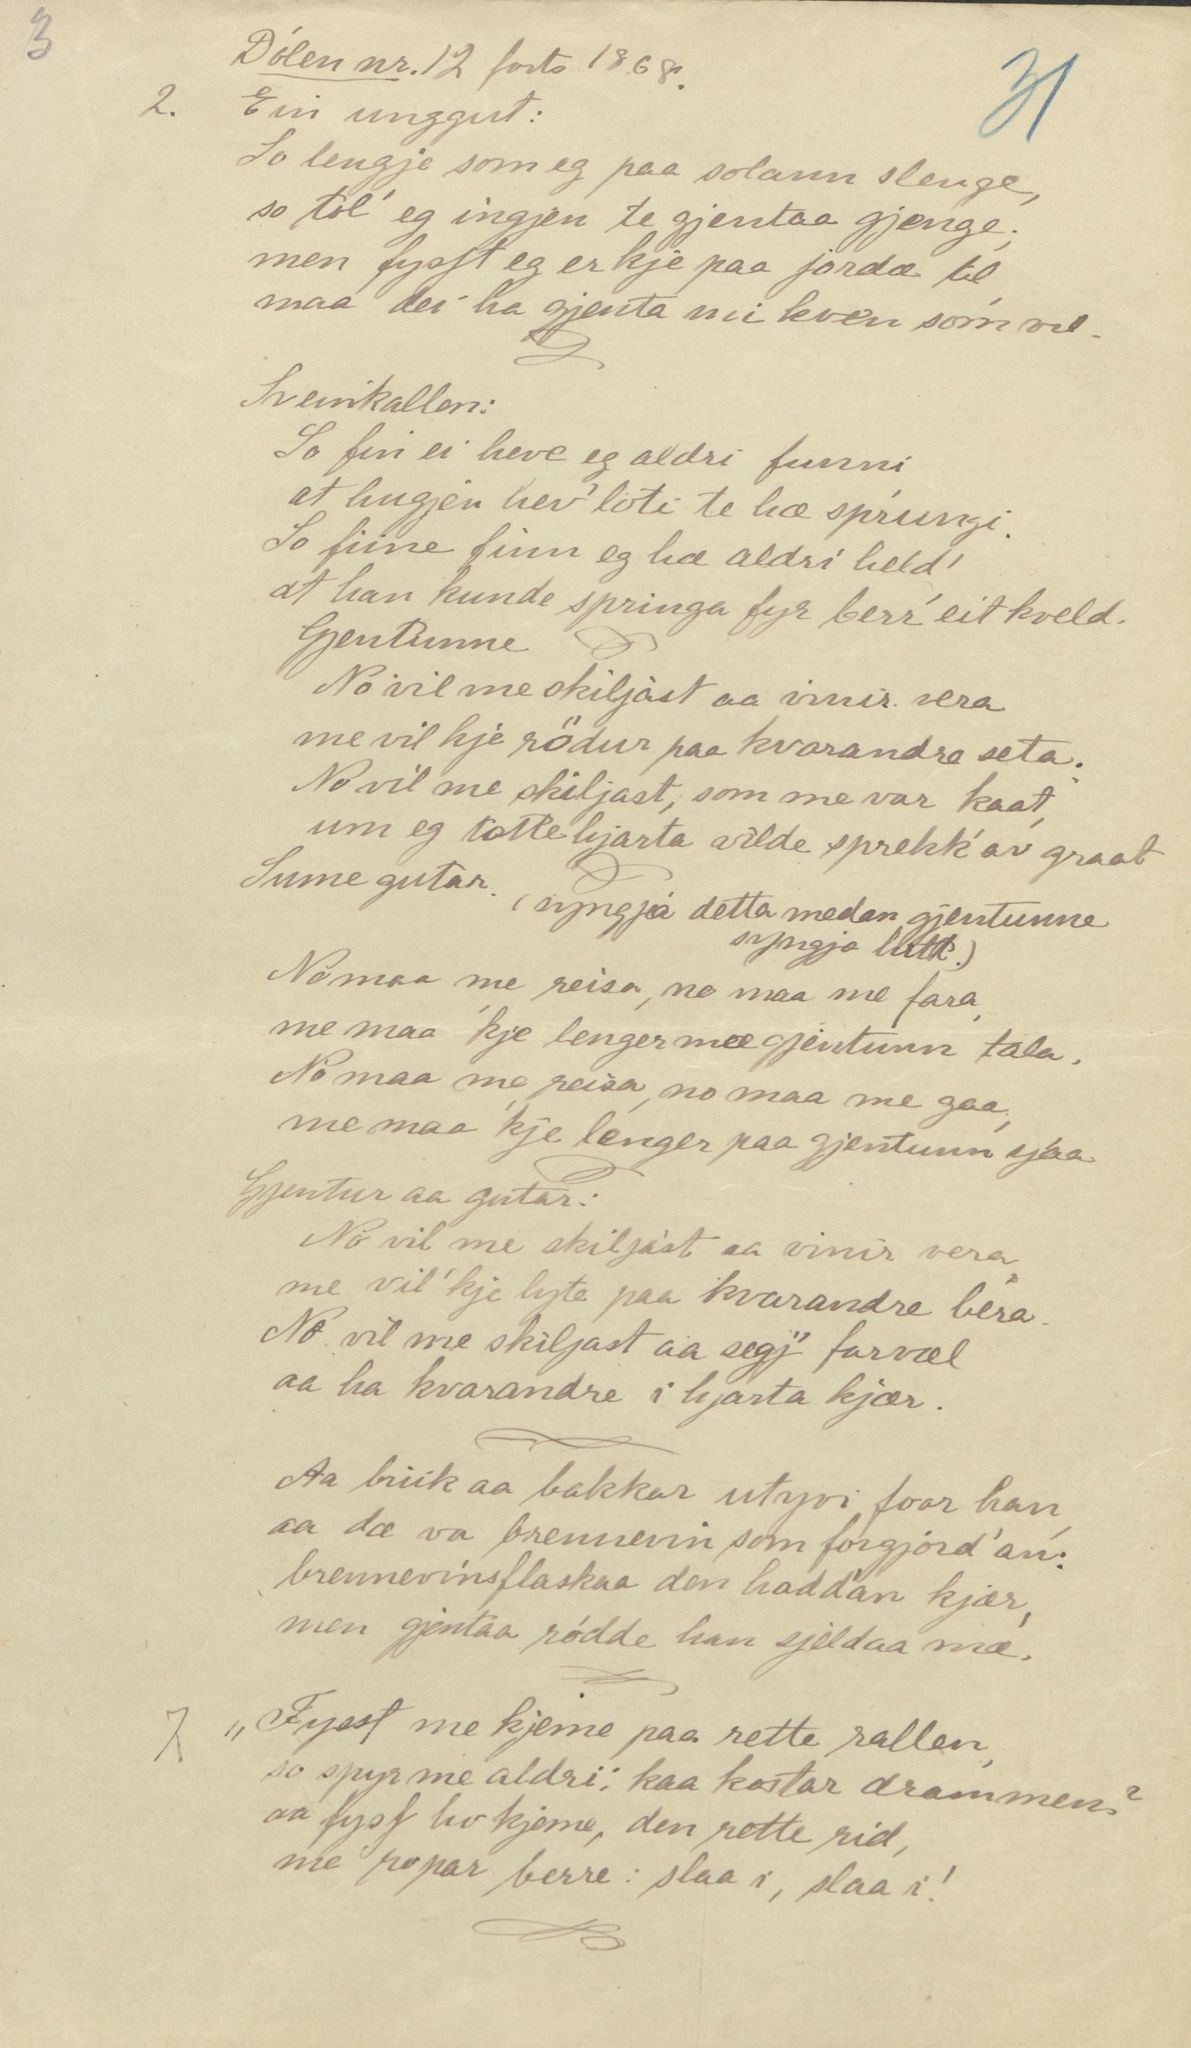 3
31
Dólen nr. 12 forts 1868.
2. Ein unggut:
So lengje som eg paa solann slenge,
so tol' eg ingjen te gjentaa gjenge;
men fysst eg er kje paa jordæ til
maa dei ha gjenta mi kven som vil.
Sveinkallen:
So fin ei heve eg aldri funni
at hugjen hev' loti te hæ sprungi.
So fiine finn eg hæ aldri held'
at han kunde springa fyr berr' eit kveld.
Gjentunne
No vil me skiljast aa vinir vera
me vil kje rödur paa kvarandre seta.
No vil me skiljast, som me var kaat,
um eg totte hjarta vilde sprekk' av graat
Sume gutar. (syngja detta medan gjentunne
syngja hitt.)
No maa me reisa, no maa me fara,
me maa 'kje lenger mæ gjentunn tala.
No maa me reisa, no maa me gaa,
me maa 'kje lenger paa gjentunn sjaa
Gjentur aa gutar:
No vil me skiljast aa vinir vera,
me vil 'kje lyte paa kvarandre bera.
No vil me skiljast aa segj" farvæl
aa ha kvarandre i hjarta kjær.
Aa bruk aa bakkar utyvi foor han
aa dæ va brennevin som forgjord' an:
brennevinsflaskaa den hadd'an kjær,
men gjentaa ródde han sjeldaa mæ.
7 „Fysst me kjeme paa rette rallen,
so spyr me aldri: kaa kostar drammen?
aa fysst ho kjeme, den rette rid,
me ropar berre: slaa i, slaa i!